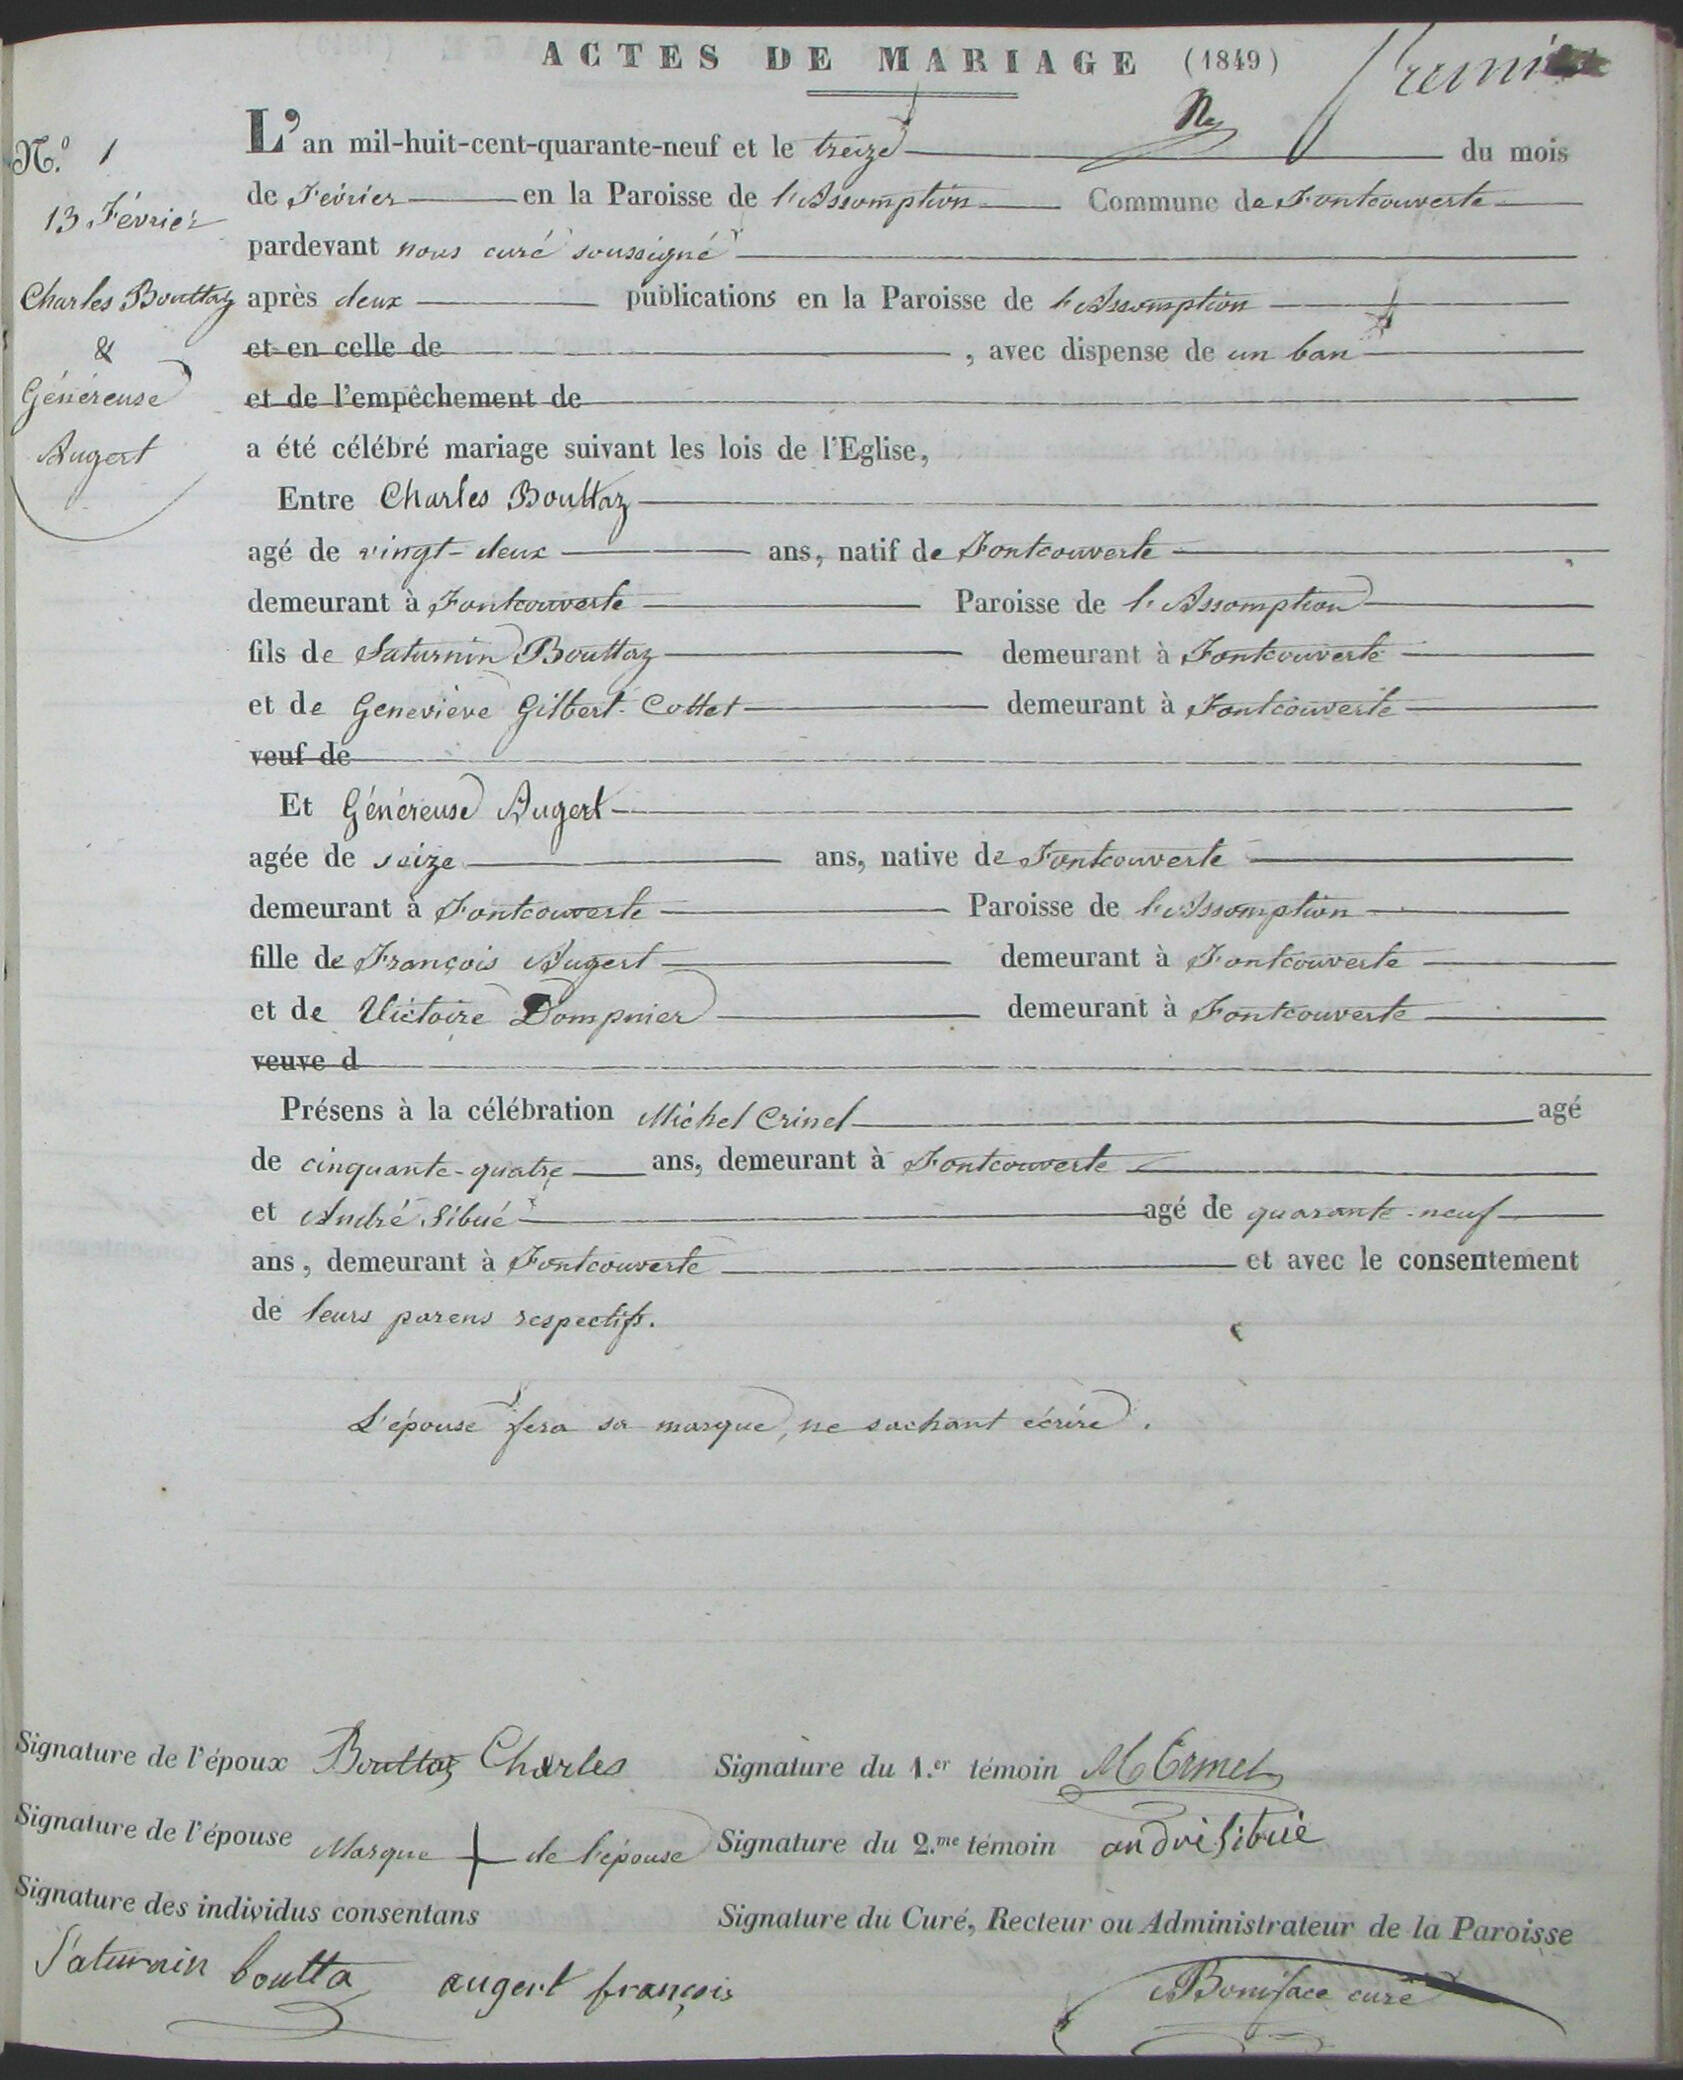 ACTES DE MARIAGE (1849)
N.º 1
13 Février
Charles Bouttaz
&
Généreuse
Augert
L'an mil-huit-cent-quarante-neuf et le treize du mois
de Février en la Paroisse de l'Assomption Commune de Fontcouverte
pardevant nous curé soussigné
après deux publications en la Paroisse de l'Assomption
et en celle de , avec dispense de un ban
et de l'empêchement de
a été célébré mariage suivant les lois de l'Eglise,
Entre Charles Bouttaz
agé de vingt-deux ans, natif de Fontcouverte
demeurant à Fontcouverte Paroisse de l'Assomption
fils de Saturnin Bouttaz demeurant à Fontcouverte
et de Geneviève Gilbert-Collet demeurant à Fontcouverte
veuf de
Et Généreuse Augert
agée de seize ans, native de Fontcouverte
demeurant à Fontcouverte Paroisse de l'Assomption
fille de François Augert demeurant à Fontcouverte
et de Victoire Dompnier demeurant à Fontcouverte
veuve d
Présens à la célébration Michel Crinel agé
de cinquante-quatre ans, demeurant à Fontcouverte
et André Sibué agé de quarante-neuf
ans, demeurant à Fontcouverte et avec le consentement
de leurs parens respectifs.
L'épouse fera sa marque, ne sachant écrire.
Signature de l'époux Bouttaz Charles
Signature du 1.er témoin M Crinel
Signature de l'épouse Marque + de l'épouse
Signature du 2.me témoin andré Sibué
Signature des individus consentans
Saturnin boutta augert françois
Signature du Curé, Recteur ou Administrateur de la Paroisse
Boniface curé